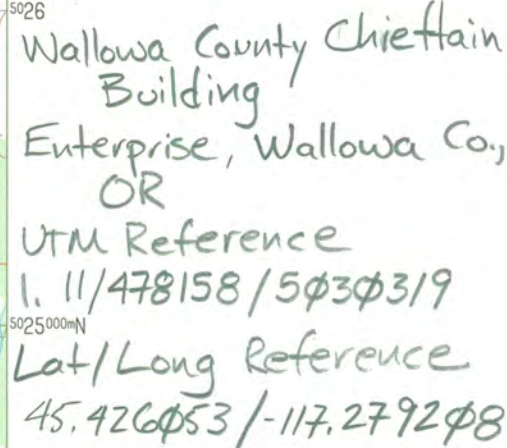 5026
Wallowa County Chieftain
Building
Enterprise, Wallowa Co.,
OR
UTM Reference
1. 11/478158/5030319
5025000mN
Lat/Long Reference
45.426053/-117.279208